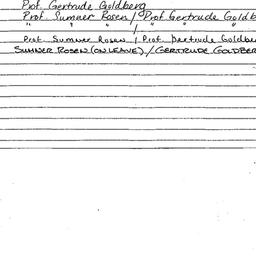 Prof. Gertrude Goldberg
Prof. Sumner Rosen / Prof Gertrude Goldb
" " " / " " "
Prof. Sumner Rosen / Prof. Gertrude Goldbe
SUMNER ROSEN (ON LEAVE) / GERTRUDE GOLDBER